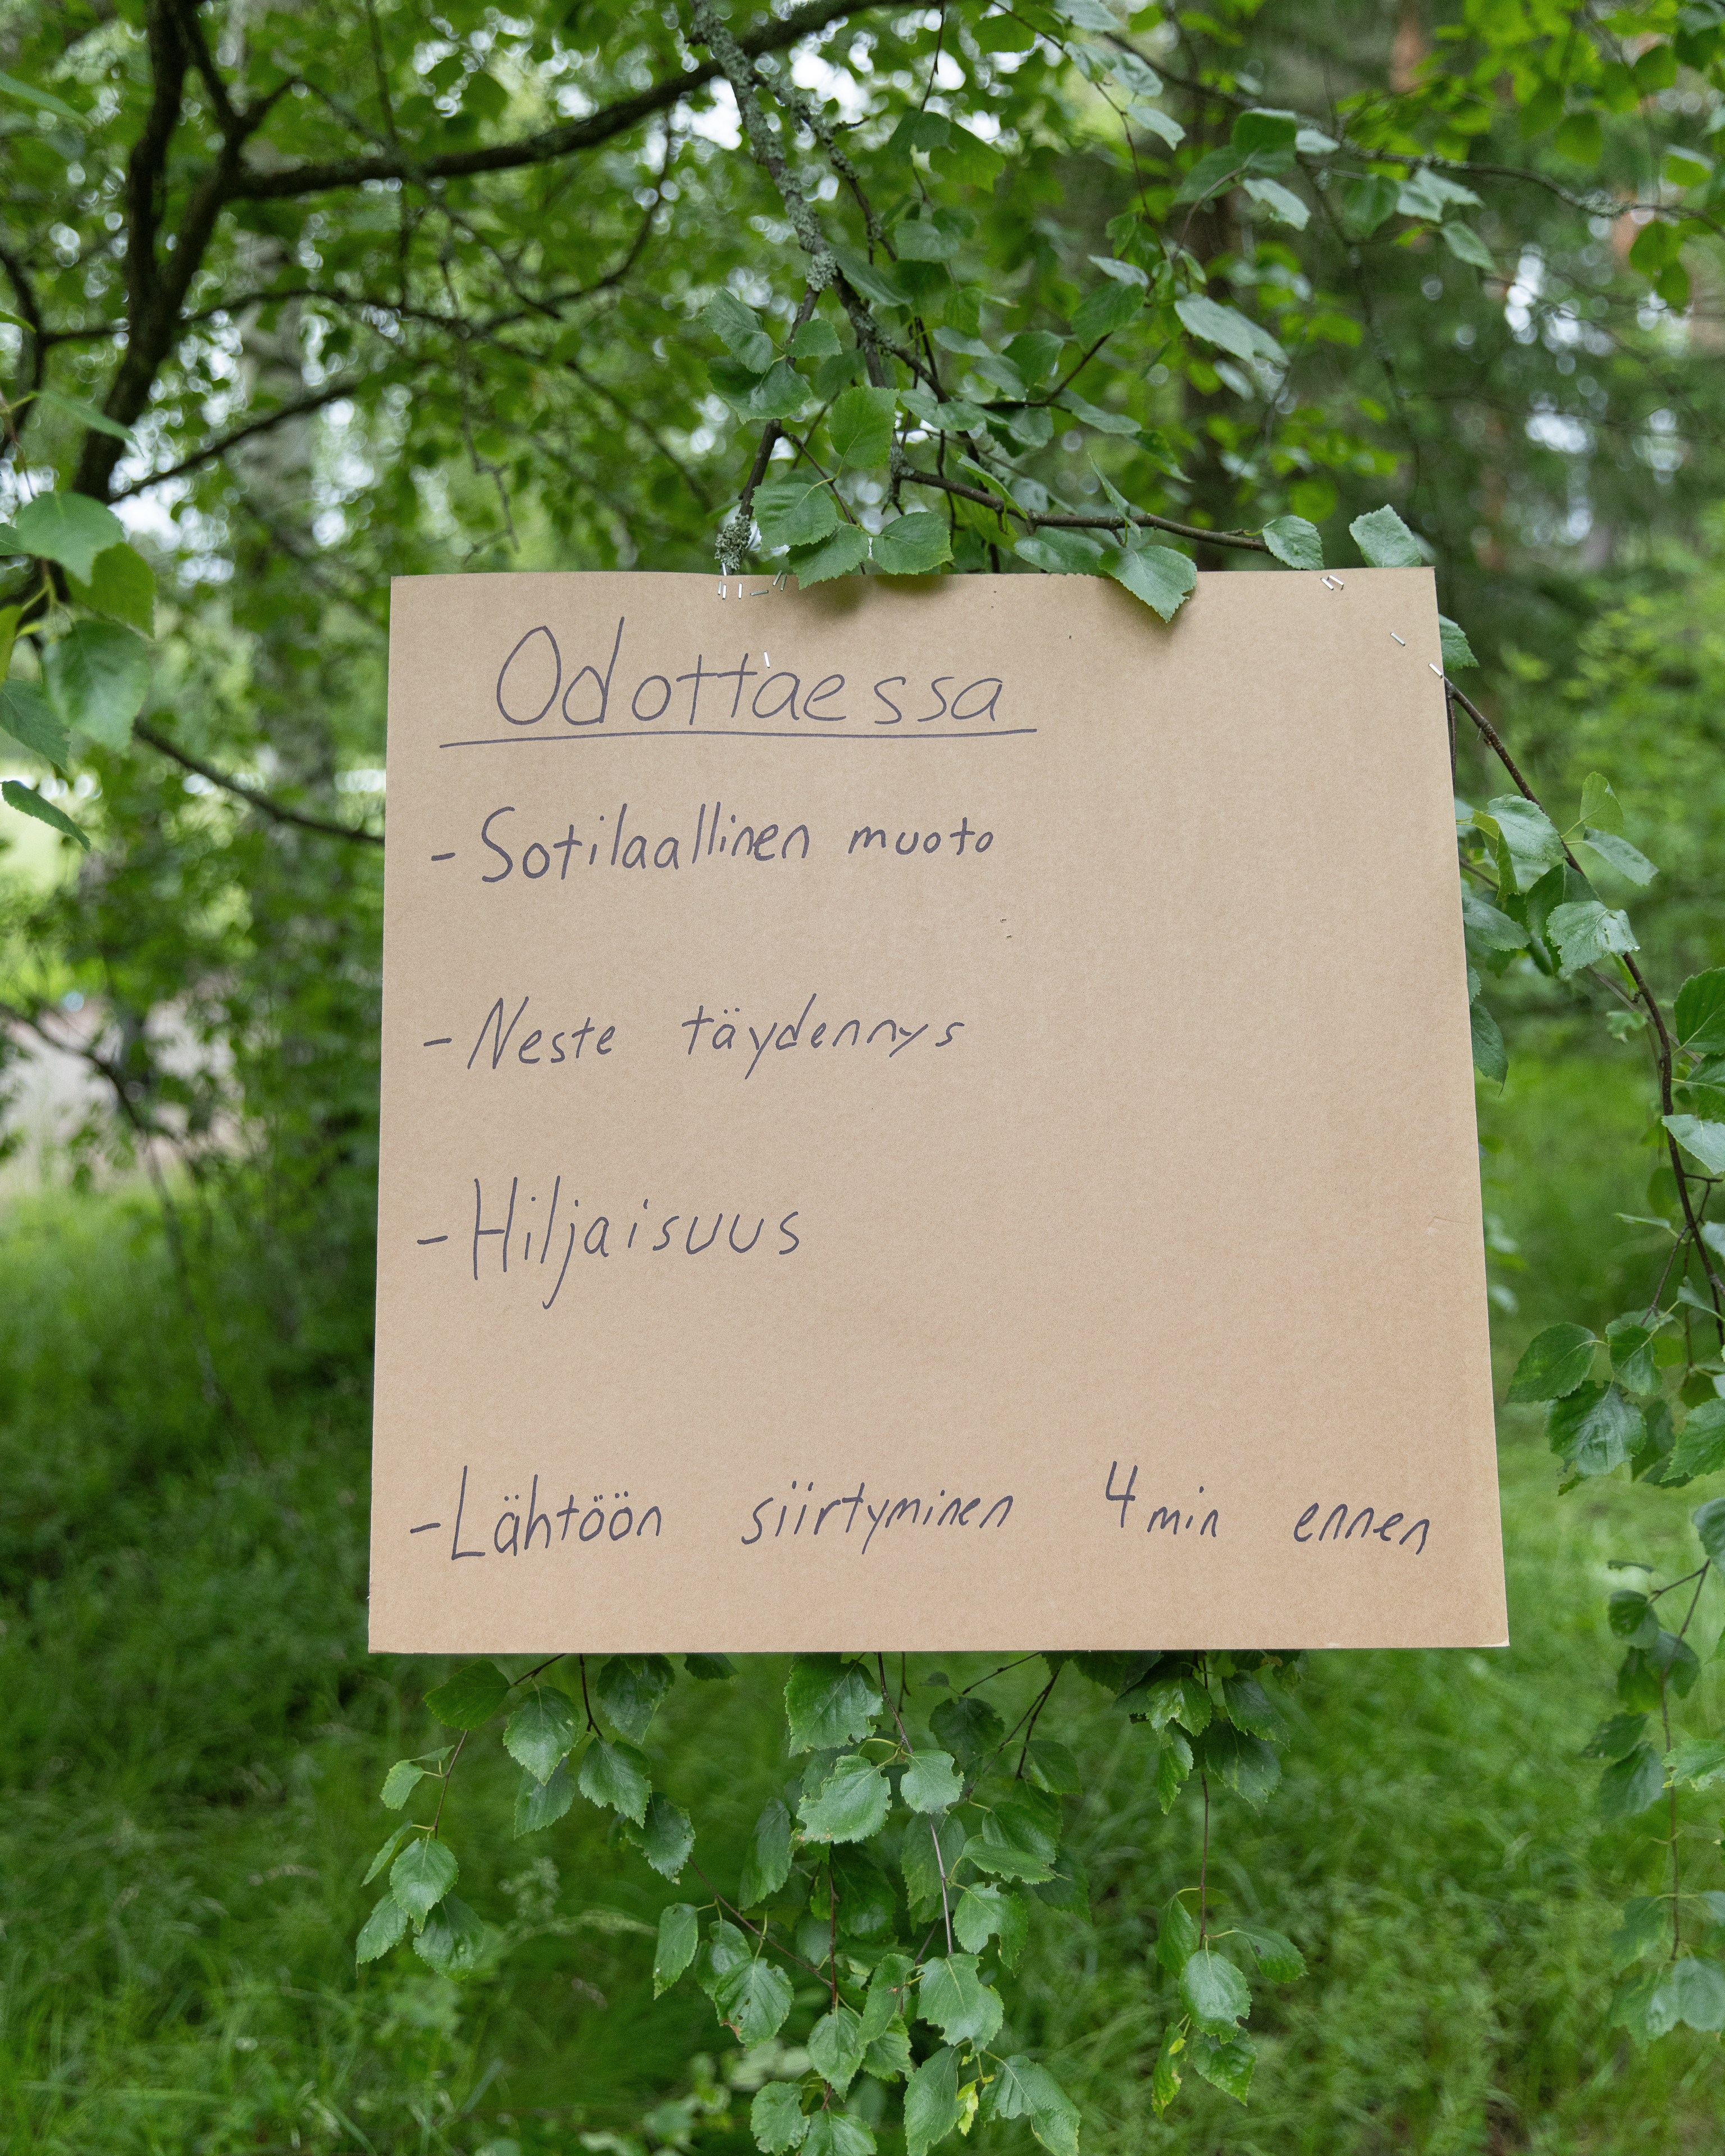 Odottaessa
- Sotilaallinen muoto
- Neste täydennys
- Hiljaisuus
- Lähtöön siirtyminen 4 min ennen